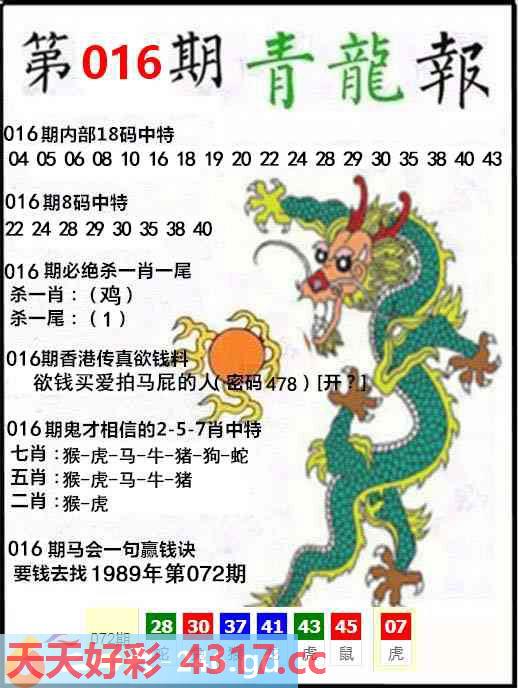 第016期青龍報
016期内部18码中特
04 05 06 08 10 16 18 19 20 22 24 28 29 30 35 38 40 43
016期8码中特
22 24 28 29 30 35 38 40
016期必绝杀一肖一尾
杀一肖：（鸡）
杀一尾：（1）
016期香港传真欲钱料
欲钱买爱拍马屁的人（密码478）[开？]
016期鬼才相信的2-5-7肖中特
七肖：猴-虎-马-牛-猪-狗-蛇
五肖：猴-虎-马-牛-猪
二肖：猴-虎
016期马会一句赢钱诀
要钱去找1989年第072期
072期 28 30 37 41 43 45 07
虎 鼠 虎
天天好彩 4317.cc